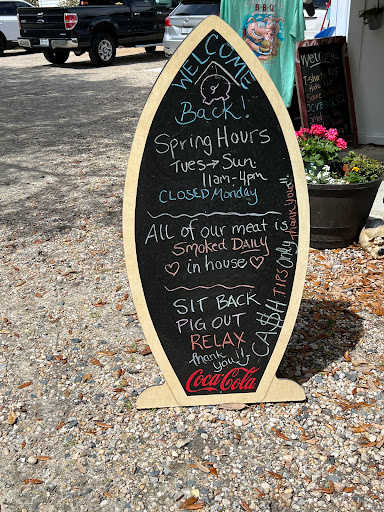 WELCOME
Back!
Spring Hours
Tues → Sun.
11am-4pm
CLOSED Monday
All of our meat is
Smoked DAILY
♡ in house ♡
SIT BACK
PIG OUT
RELAX
thank you!!
Coca-Cola
CA$H TIPS Only Thank you!!
BBQ
Welcome
T-Shirts